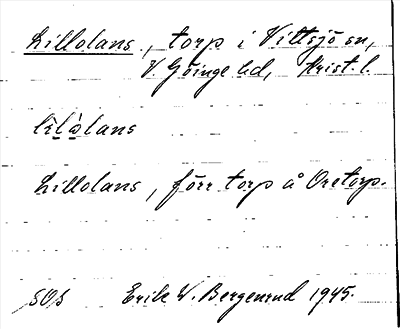 Lillolans, torp i Vittsjö sn,
V. Göinge hd, Krist. l.
lìlòlans
Lillolans, förr torp å Oretorp.
SOS Erik W. Bergenrud 1945.